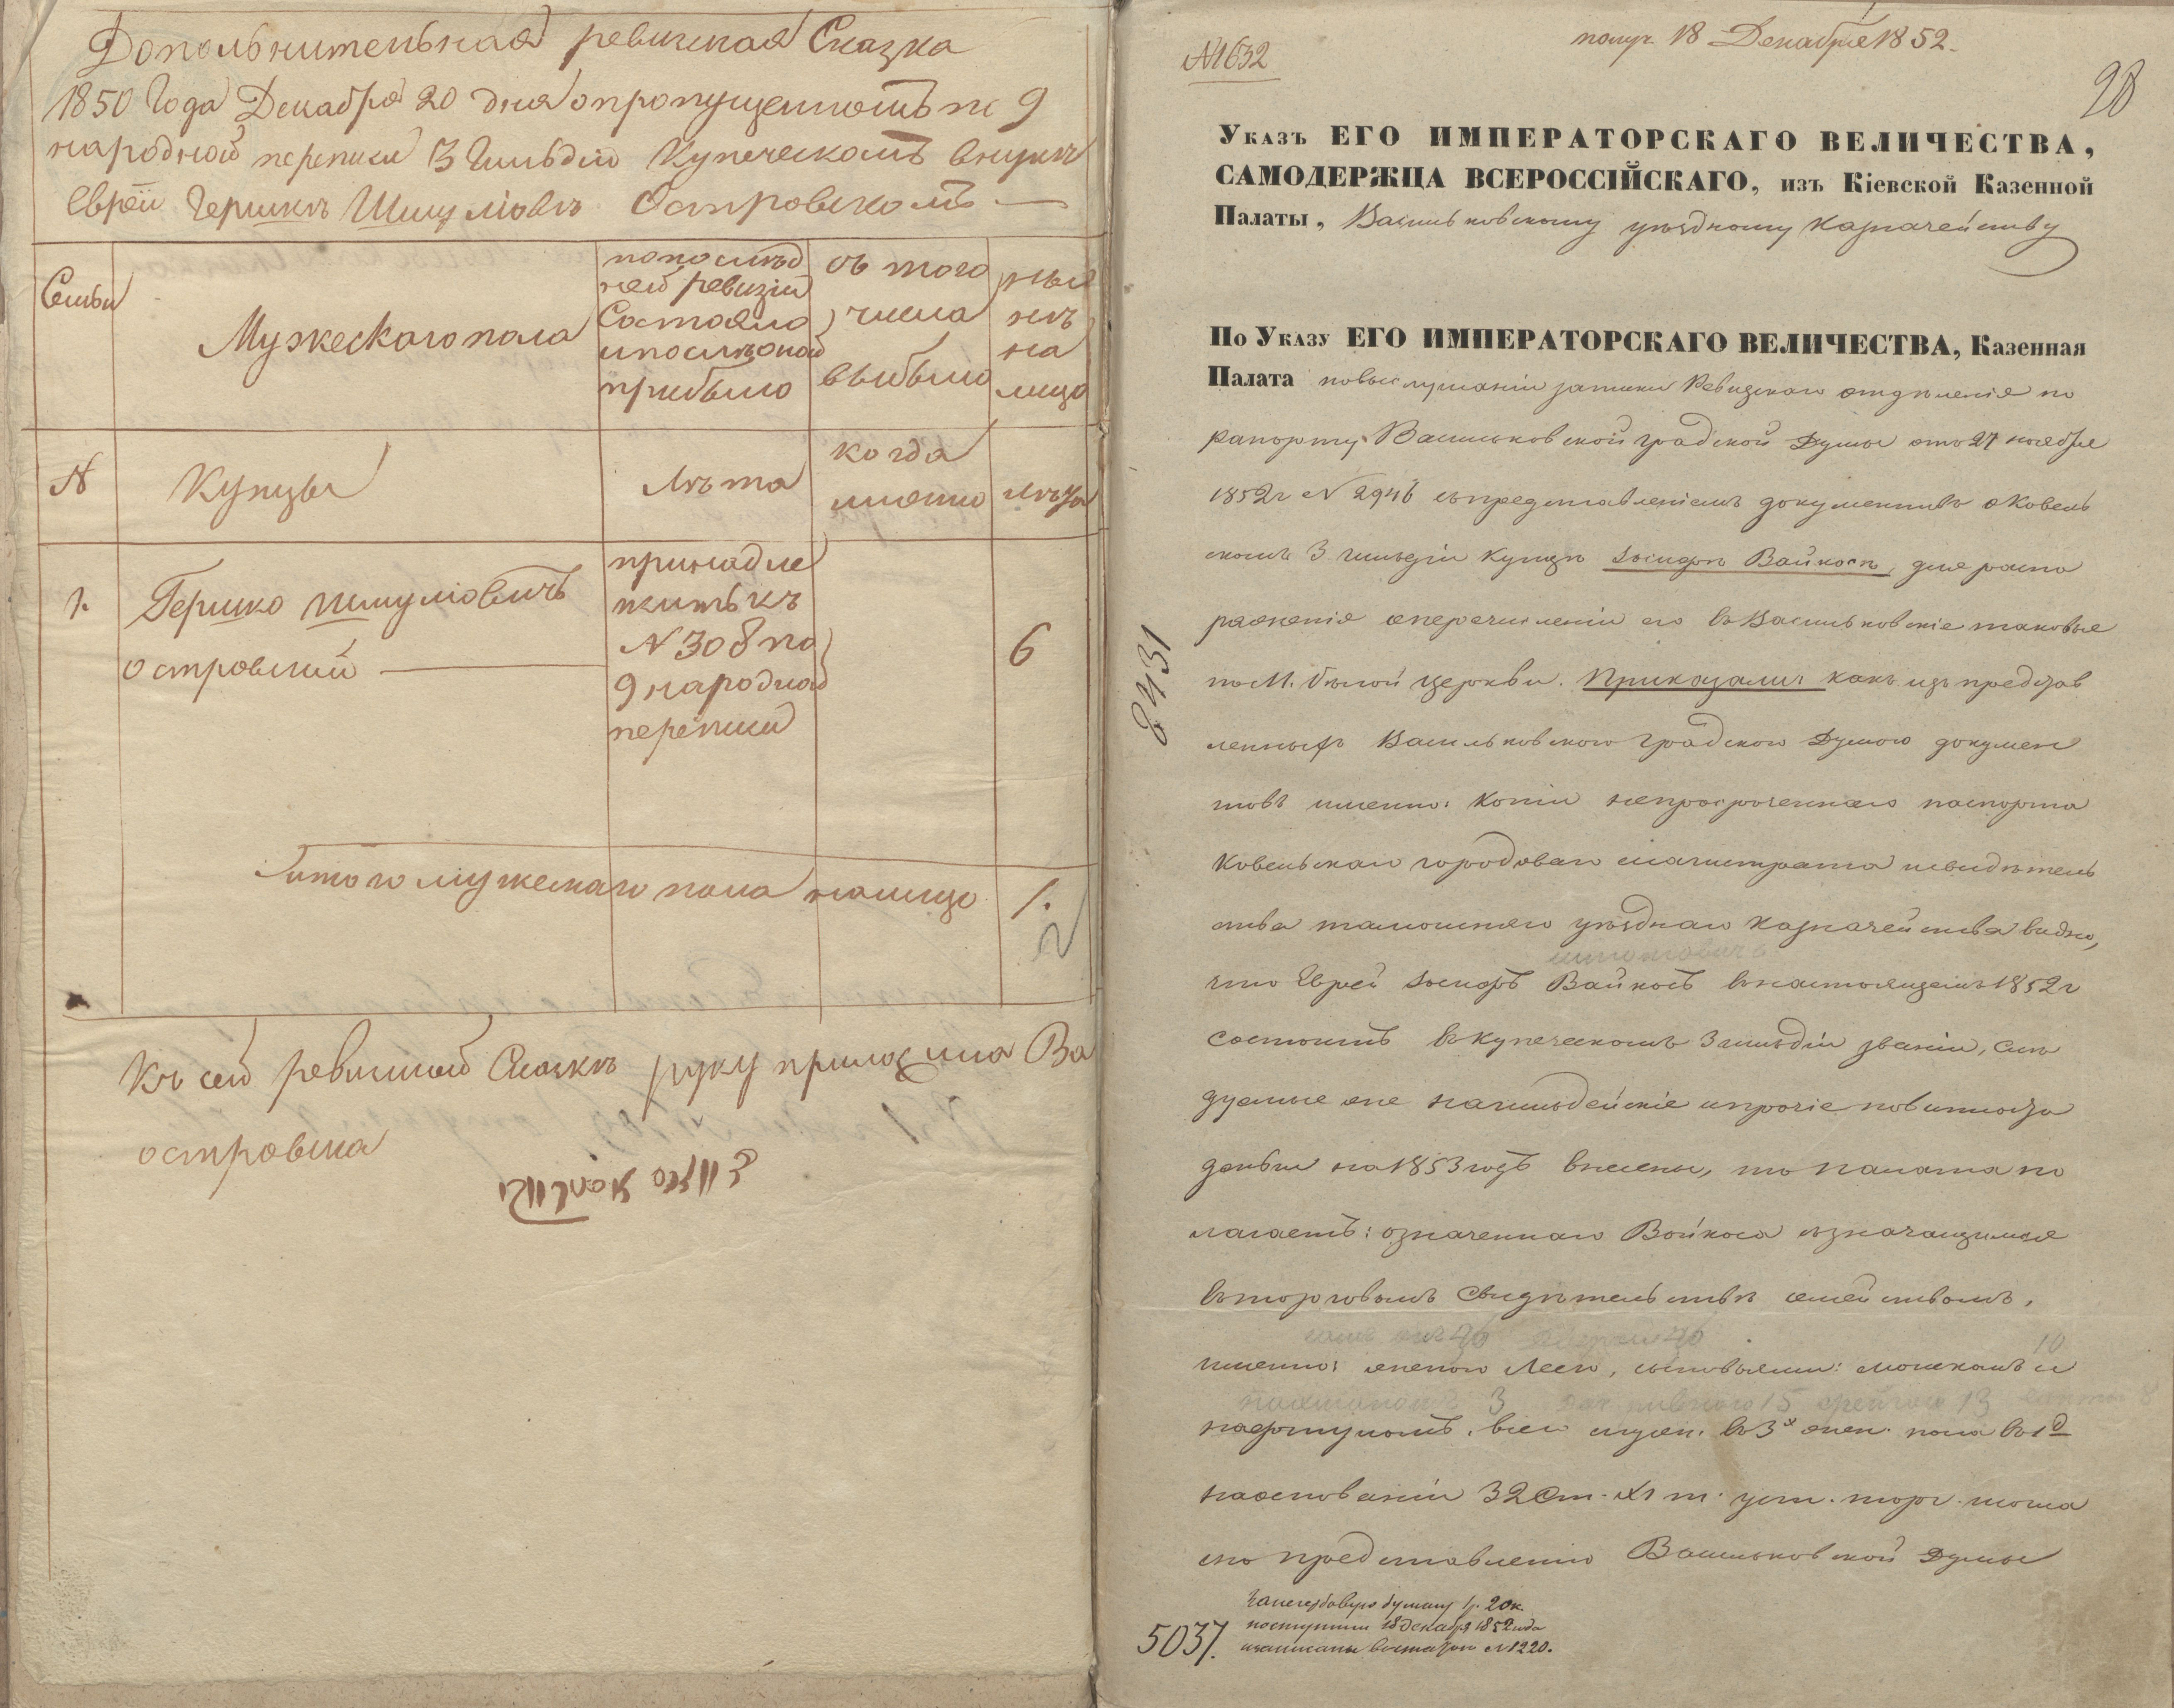 Дополнительная ревизская Сказка
1850 Года Декабря 20 дня опропущенномъ по 9
народной переписи 3 Гильдіи Купеческомъ внукѣ
Еврей Гершкѣ Шмуліовѣ Островскомъ —
Семьи
Мужескаго пола
попослѣд
ней ревизіи
Состояло
ипослѣоной
прибыло
съ того
числа
выбыло
ны
нѣ
на
лицо
№
Купцы
Лѣта
когда
имянно
Лѣта
1.
Гершко Шмуліовичъ
островский
принадле
житъ къ
№ 308 по
9 народной
переписи
6
Итого мужескаго пола налицо 1.
2
Къ сей ревизской Сказкѣ руку приложила Ва
островска
№1632
получ. 18 Декабря 1852.
28
Указъ ЕГО ИМПЕРАТОРСКАГО ВЕЛИЧЕСТВА,
САМОДЕРЖЦА ВСЕРОССІЙСКАГО, изъ Кіевской Казенной
Палаты, Васильковскому уѣздному Казначейству
По Указу ЕГО ИМПЕРАТОРСКАГО ВЕЛИЧЕСТВА, Казенная
Палата повыслушаніи записки Ревизскаго отдѣленія по
рапорту Васильковской Градской Думы отъ 27 ноября
1852г № 2946 съпредставленіемъ документовъ оКовель
скомъ 3 гильдіи Купцѣ Іосифѣ Вайносѣ, для распо
ряженія оперечисленіи его въВасильковскіе таковые
поМ. бѣлой церкви. Приказали: какъ изъ представ
ленныхъ Васильковскою Градскою Думою докумен
товъ именно: копіи непросроченнаго паспорта
Ковельскаго городоваго магистрата исвидѣтель
ства тамошняго уѣзднаго Казначейства видно,
что Еврей Іосифъ Вайносъ внастоящемъ 1852г
состоитъ вкупеческомъ 3 гильдіи званіи, слѣ
дуемые оне нагильдейскіе ипрочіе повинности
деньги на 1853 годъ внесены, то палата по
лагаетъ: означеннаго Войноса съзначащимся
въторговомъ Свидѣтельствѣ семействомъ,
именно: женою Леею, сыновьями: мошкомъ и
10
нафтуломъ, всего мужес. въ 3х жен. пола въ 1й
наоснованіи 32 Ст. XI т. уст. торг.
по представленію Васильковской Думы
2431
Загербовую бумагу 1р. 20к.
поступили 18 декабря 1852 года
изаписаны №1220.
5037.